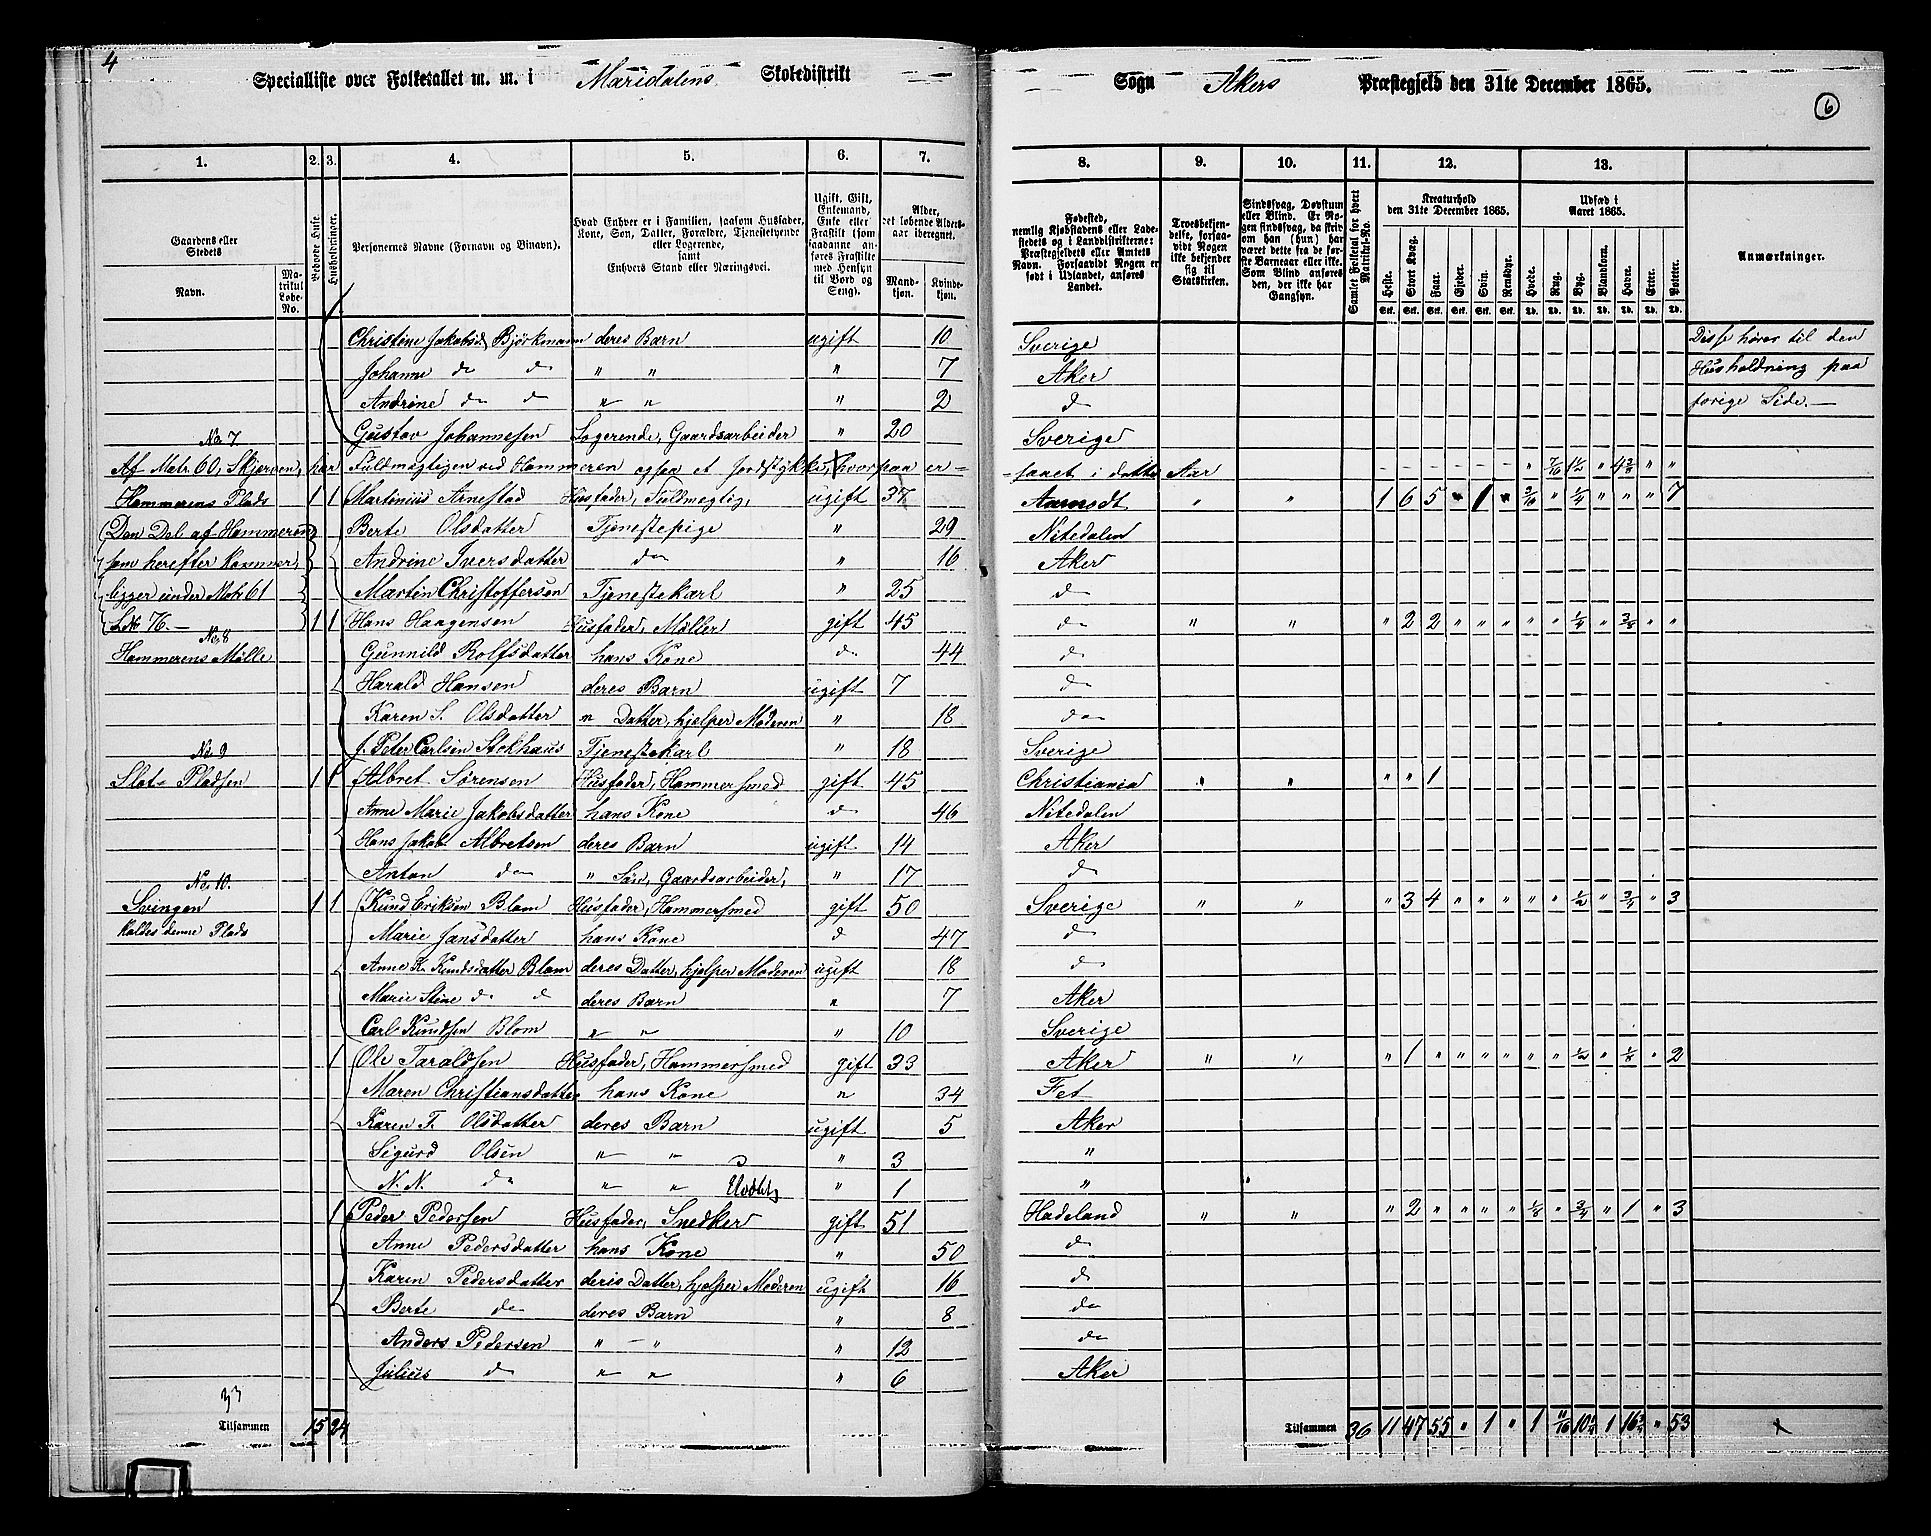 4
Specialliste over Folketallet m. m. i Maridalens Skoledistrikt
Sogn Akers Præstegjeld den 31te December 1865.
6
1. 2. 3. 4. 5. 6. 7. 8. 9. 10. 11. 12. 13.
Gaardens eller Stedets
Navn.
Matrikul Løbe-No.
Bebvede Huse.
Husholdninger.
Personernes Navne (Fornavn og Binavn).
Hvad Enhver er i Familien, saasom Husfader, Kone, Søn, Datter, Forældre, Tjenestetyende eller Logerende, samt Enhvers Stand eller Næringsvei.
Ugift, Gift, Enkemand, Enke eller Fraskilt (som saadanne anføres Fraskilte med Hensyn til Bord og Seng).
Alder, det løbende Aldersaar iberegnet.
Mandkjøn. Kvindekjøn.
Fødested, nemlig Kjøbstadens eller Ladestedets og i Landdistrikterne: Præstegjeldets eller Amtets Navn. Forsaavidt Nogen er født i Udlandet, anføres Landet.
Troesbekjendelse, forsaavidt Nogen ikke bekjender sig til Statskirken.
Sindssvag, Døvstum eller Blind. Er Nogen sindssvag, da skriv om han (hun) har været dette fra de første Barneaar eller ikke. Som Blind anføres den, der ikke har Gangsyn.
Samlet Folketal for hvert Matrikul-No.
Kreaturhold den 31te December 1865.
Heste. Stort Kvæg. Faar. Gjeder. Svin. Rensdyr.
Udsæd i Aaret 1865.
Hvede. Rug. Byg. Blandkorn. Havre. Erter. Poteter.
Anmærkninger.
Christine Jakobsd. Björkmann deres Barn ugift 10 Sverige Disse hører til den
Johanne do do " " " 7 Aker Husholdning paa
Andrine do do " " " 2 do forige Side.
Gustav Johannesen Logerende, Gaardsarbeider " 20 Sverige
No 7
Af Matr. 60, Skjerven, har Fuldmegtigen ved Hammeren ogsaa et Jordstykke, hvorpaa er saaet i dette Aar " 7/10 1 1/2 " 4 3/8 " "
Hammerens Plads 1 1 Martinius Arnestad Husfader, Fuldmegtig, ugift 37 " " 1 6 5 " 1 " " " " " 7
(Den Del af Hammeren Berte Olsdatter Tjenestepige " 29 Nitedalen
som herefter kommer, Andrine Iversdatter do " 16 Aker
ligger under Matr. 61 Martin Christoffersen Tjenestekarl " 25 do
76. 1 1 Hans Haagensen Husfader, Møller gift 45 do " " " 2 2 " " " " " 1/4 " 3/8 " "
No. 8
Hammerens Mølle Gunnild Rolfsdatter hans Kone do 44 do
Harald Hansen deres Barn ugift 7 do
Karen S. Olsdatter " Datter, hjelper Moderen " 18 do
Peter Carlsen Stokhaus Tjenestekarl " 18 Sverige
No. 9
Slots Pladsen 1 1 Albret Sørensen Husfader, Hammersmed gift 45 Christiania " " " " 1
Anne Marie Jakobsdatter hans Kone do 46 Nitedalen
Hans Jakob Albretsen deres Barn ugift 14 Aker
Anton do " Søn, Gaardsarbeider, " 17 do
No. 10.
Svingen 1 1 Knud Eriksen Blom Husfader, Hammersmed gift 50 Sverige " " " 3 4 " " " " " 1/2 " 3/4 " 3
kaldes denne Plads Marie Jansdatter hans Kone d 47 do
Anne K. Knudsdatter Blom deres Datter, hjelper Moderen ugift 18 do
Marie Stine do do deres Barn " 7 Aker
Carl Knudsen Blom " " " 10 Sverige
1 Ole Taraldsen Husfader, Hammersmed gift 33 Aker " " " 1 " " " " " " 1/2 " 1/8 " 2
Maren Christiansdatter hans Kone " 34 Fet
Karen T. Olsdatter deres Barn ugift 5 Aker
Sigurd Olsen " " " 3 "
N. N. do " " Udøbt " 1 "
1 Peder Pedersen Husfader, Snedker gift 51 Hadeland " " " 2 " " " " 1/8 " 3/4 " 1 " 3
Anne Pedersdatter hans Kone " 50 do
Karen Pedersdatter deres Datter, hjelper Moderen ugift 16 do
Berte do deres Barn " 8 do
Anders Pedersen " " " 12 do
Julius do " " " 6 Aker
33
Tilsammen 15 24
Tilsammen 36 11 47 55 " 1 " 1 1 53